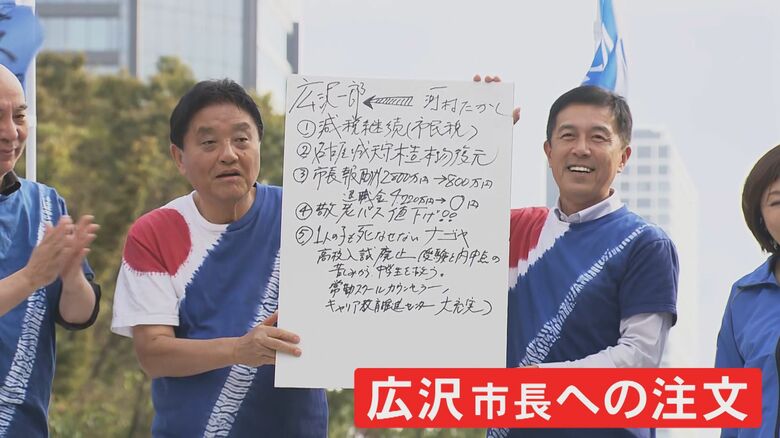 広沢一郎 ← 河村たかし
① 減税継続(市民税)
② 名古屋城天守木造本物復元
③ 市長報酬2800万円→800万円
退職金4220万円→0円
④ 敬老パス値下げ!?
⑤ 1人の子も死なせないナゴヤ
高校入試廃止、受験と内申点の
苦しみから中学生を救おう。
常勤スクールカウンセラー、
キャリア教育推進センター大充実)
広沢市長への注文